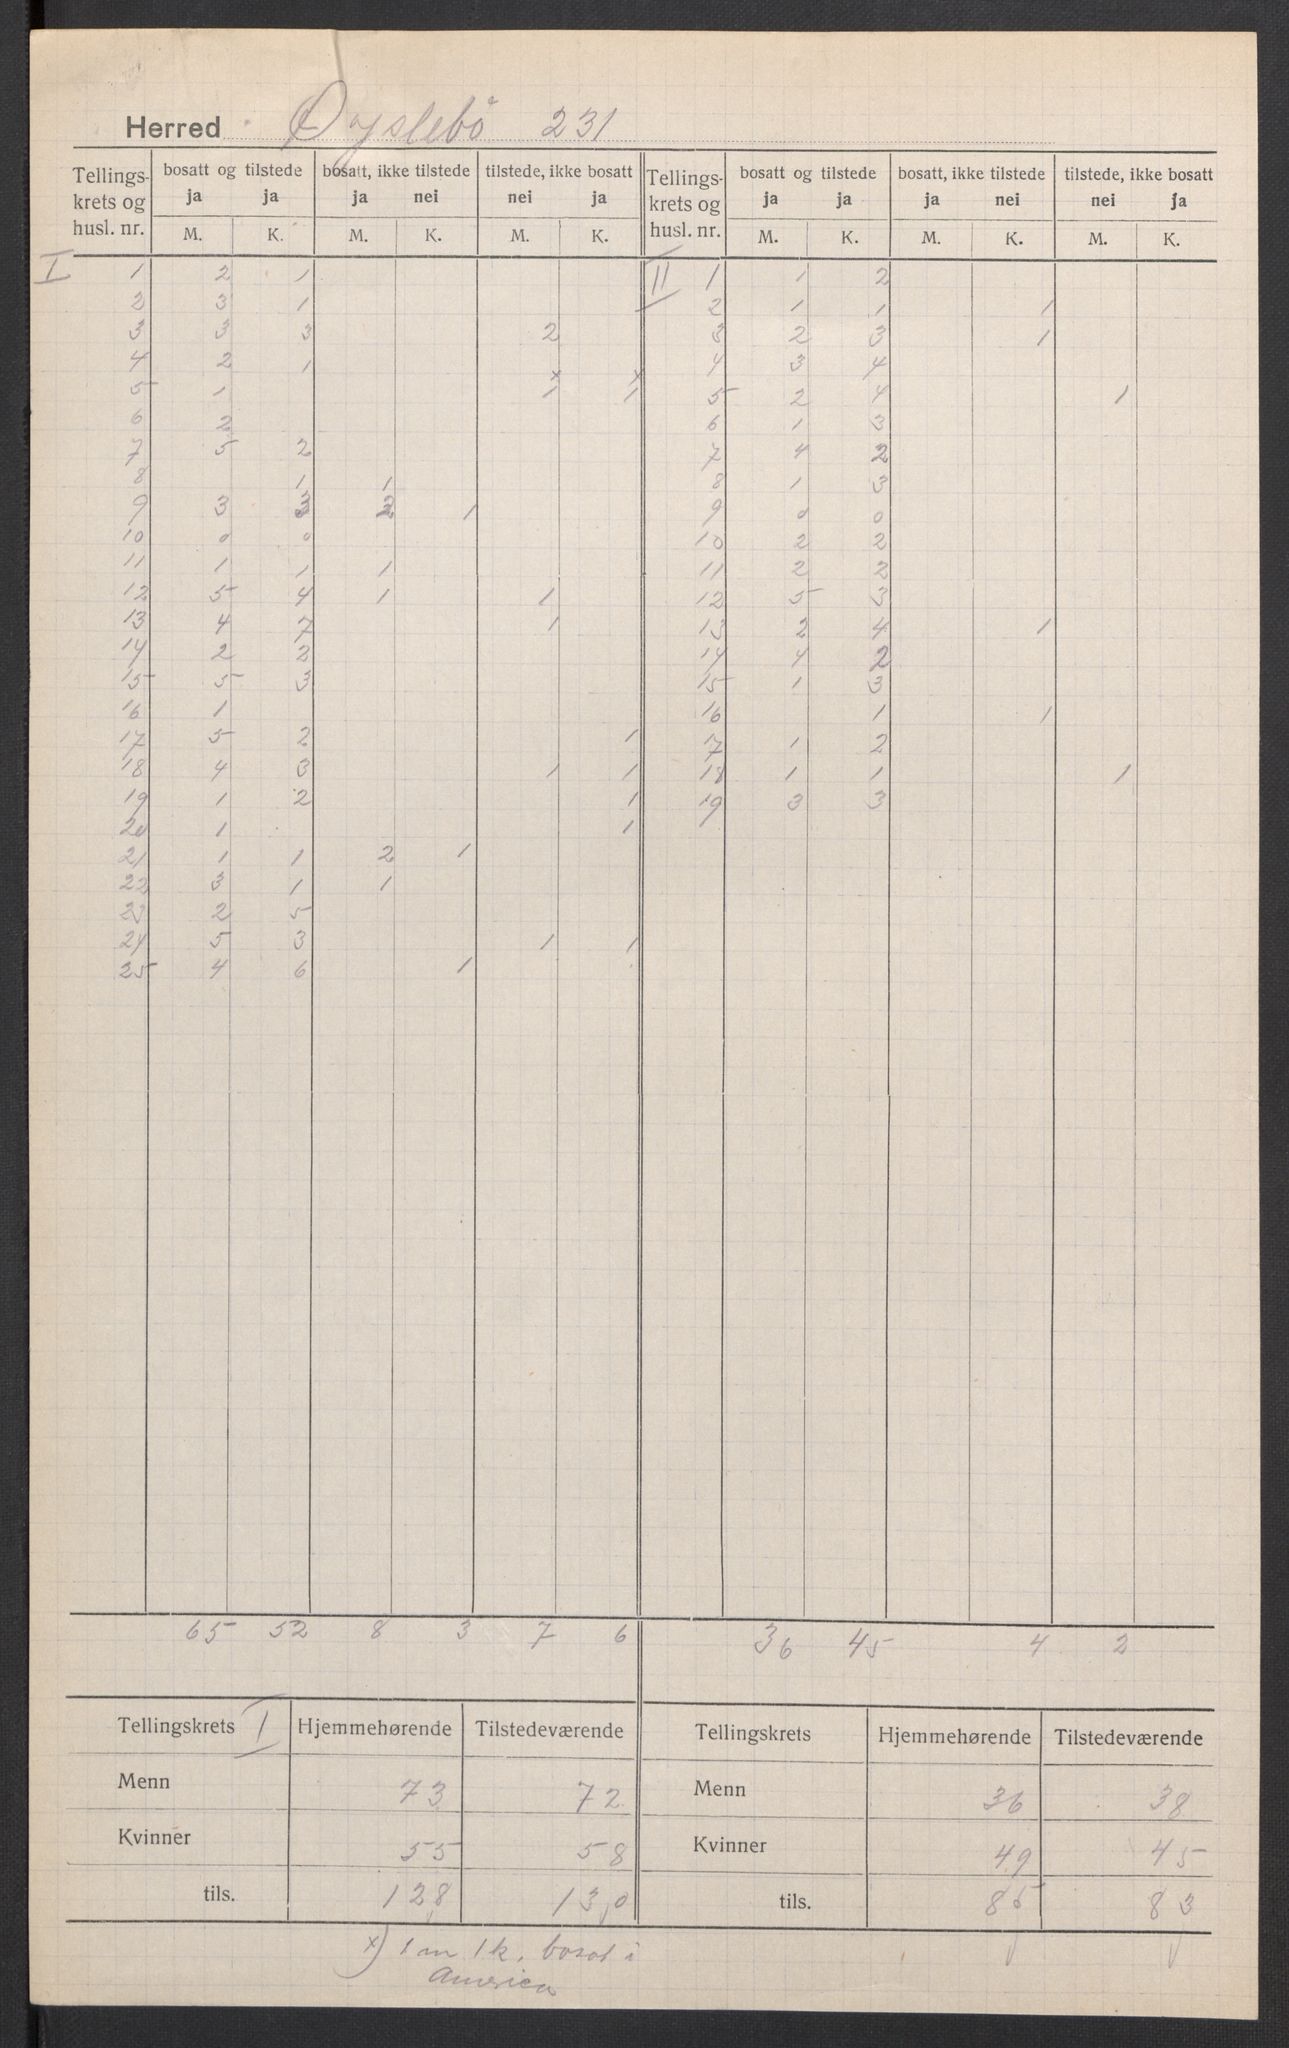 Herred Øyslebø 231
Tellings- krets og husl. nr. | bosatt og tilstede ja ja M. K. | bosatt, ikke tilstede ja nei M. K. | tilstede, ikke bosatt nei ja M. K. | Tellings- krets og husl. nr. | bosatt og tilstede ja ja M. K. | bosatt, ikke tilstede ja nei M. K. | tilstede, ikke bosatt nei ja M. K.
I 1 | 2 | 1 | | | | | II 1 | 1 | 2 | | | |
2 | 3 | 1 | | | | | 2 | 1 | 1 | | 1 | |
3 | 3 | 3 | | | 2 | | 3 | 2 | 3 | | 1 | |
4 | 2 | 1 | | | | | 4 | 3 | 4 | | | |
5 | 1 | | | | x 1 | x 1 | 5 | 2 | 4 | | | 1 |
6 | 2 | | | | | | 6 | 1 | 3 | | | |
7 | 5 | 2 | | | | | 7 | 4 | 2 | | | |
8 | | 1 | 1 | | | | 8 | 1 | 3 | | | |
9 | 3 | 3 | 2 | 1 | | | 9 | 0 | 0 | | | |
10 | 0 | 0 | | | | | 10 | 2 | 2 | | | |
11 | 1 | 1 | 1 | | | | 11 | 2 | 2 | | | |
12 | 5 | 4 | 1 | | 1 | | 12 | 5 | 3 | | | |
13 | 4 | 7 | | | 1 | | 13 | 2 | 4 | | 1 | |
14 | 2 | 2 | | | | | 14 | 4 | 2 | | | |
15 | 5 | 3 | | | | | 15 | 1 | 3 | | | |
16 | 1 | | | | | | 16 | | 1 | | 1 | |
17 | 5 | 2 | | | | 1 | 17 | 1 | 2 | | | |
18 | 4 | 3 | | | 1 | 1 | 18 | 1 | 1 | | | 1 |
19 | 1 | 2 | | | | 1 | 19 | 3 | 3 | | | |
20 | 1 | | | | | 1
21 | 1 | 1 | 2 | 1 | |
22 | 3 | 1 | 1 | | |
23 | 2 | 5 | | | |
24 | 5 | 3 | | | 1 | 1
25 | 4 | 6 | | 1 | |
65 | 52 | 8 | 3 | 7 | 6 | | 36 | 45 | | 4 | 2 |
Tellingskrets I | Hjemmehørende | Tilstedeværende | Tellingskrets | Hjemmehørende | Tilstedeværende
Menn | 73 | 72 | Menn | 36 | 38
Kvinner | 55 | 58 | Kvinner | 49 | 45
tils. | 128 | 130 | tils. | 85 | 83
x) 1 m 1 k. bosat i
America